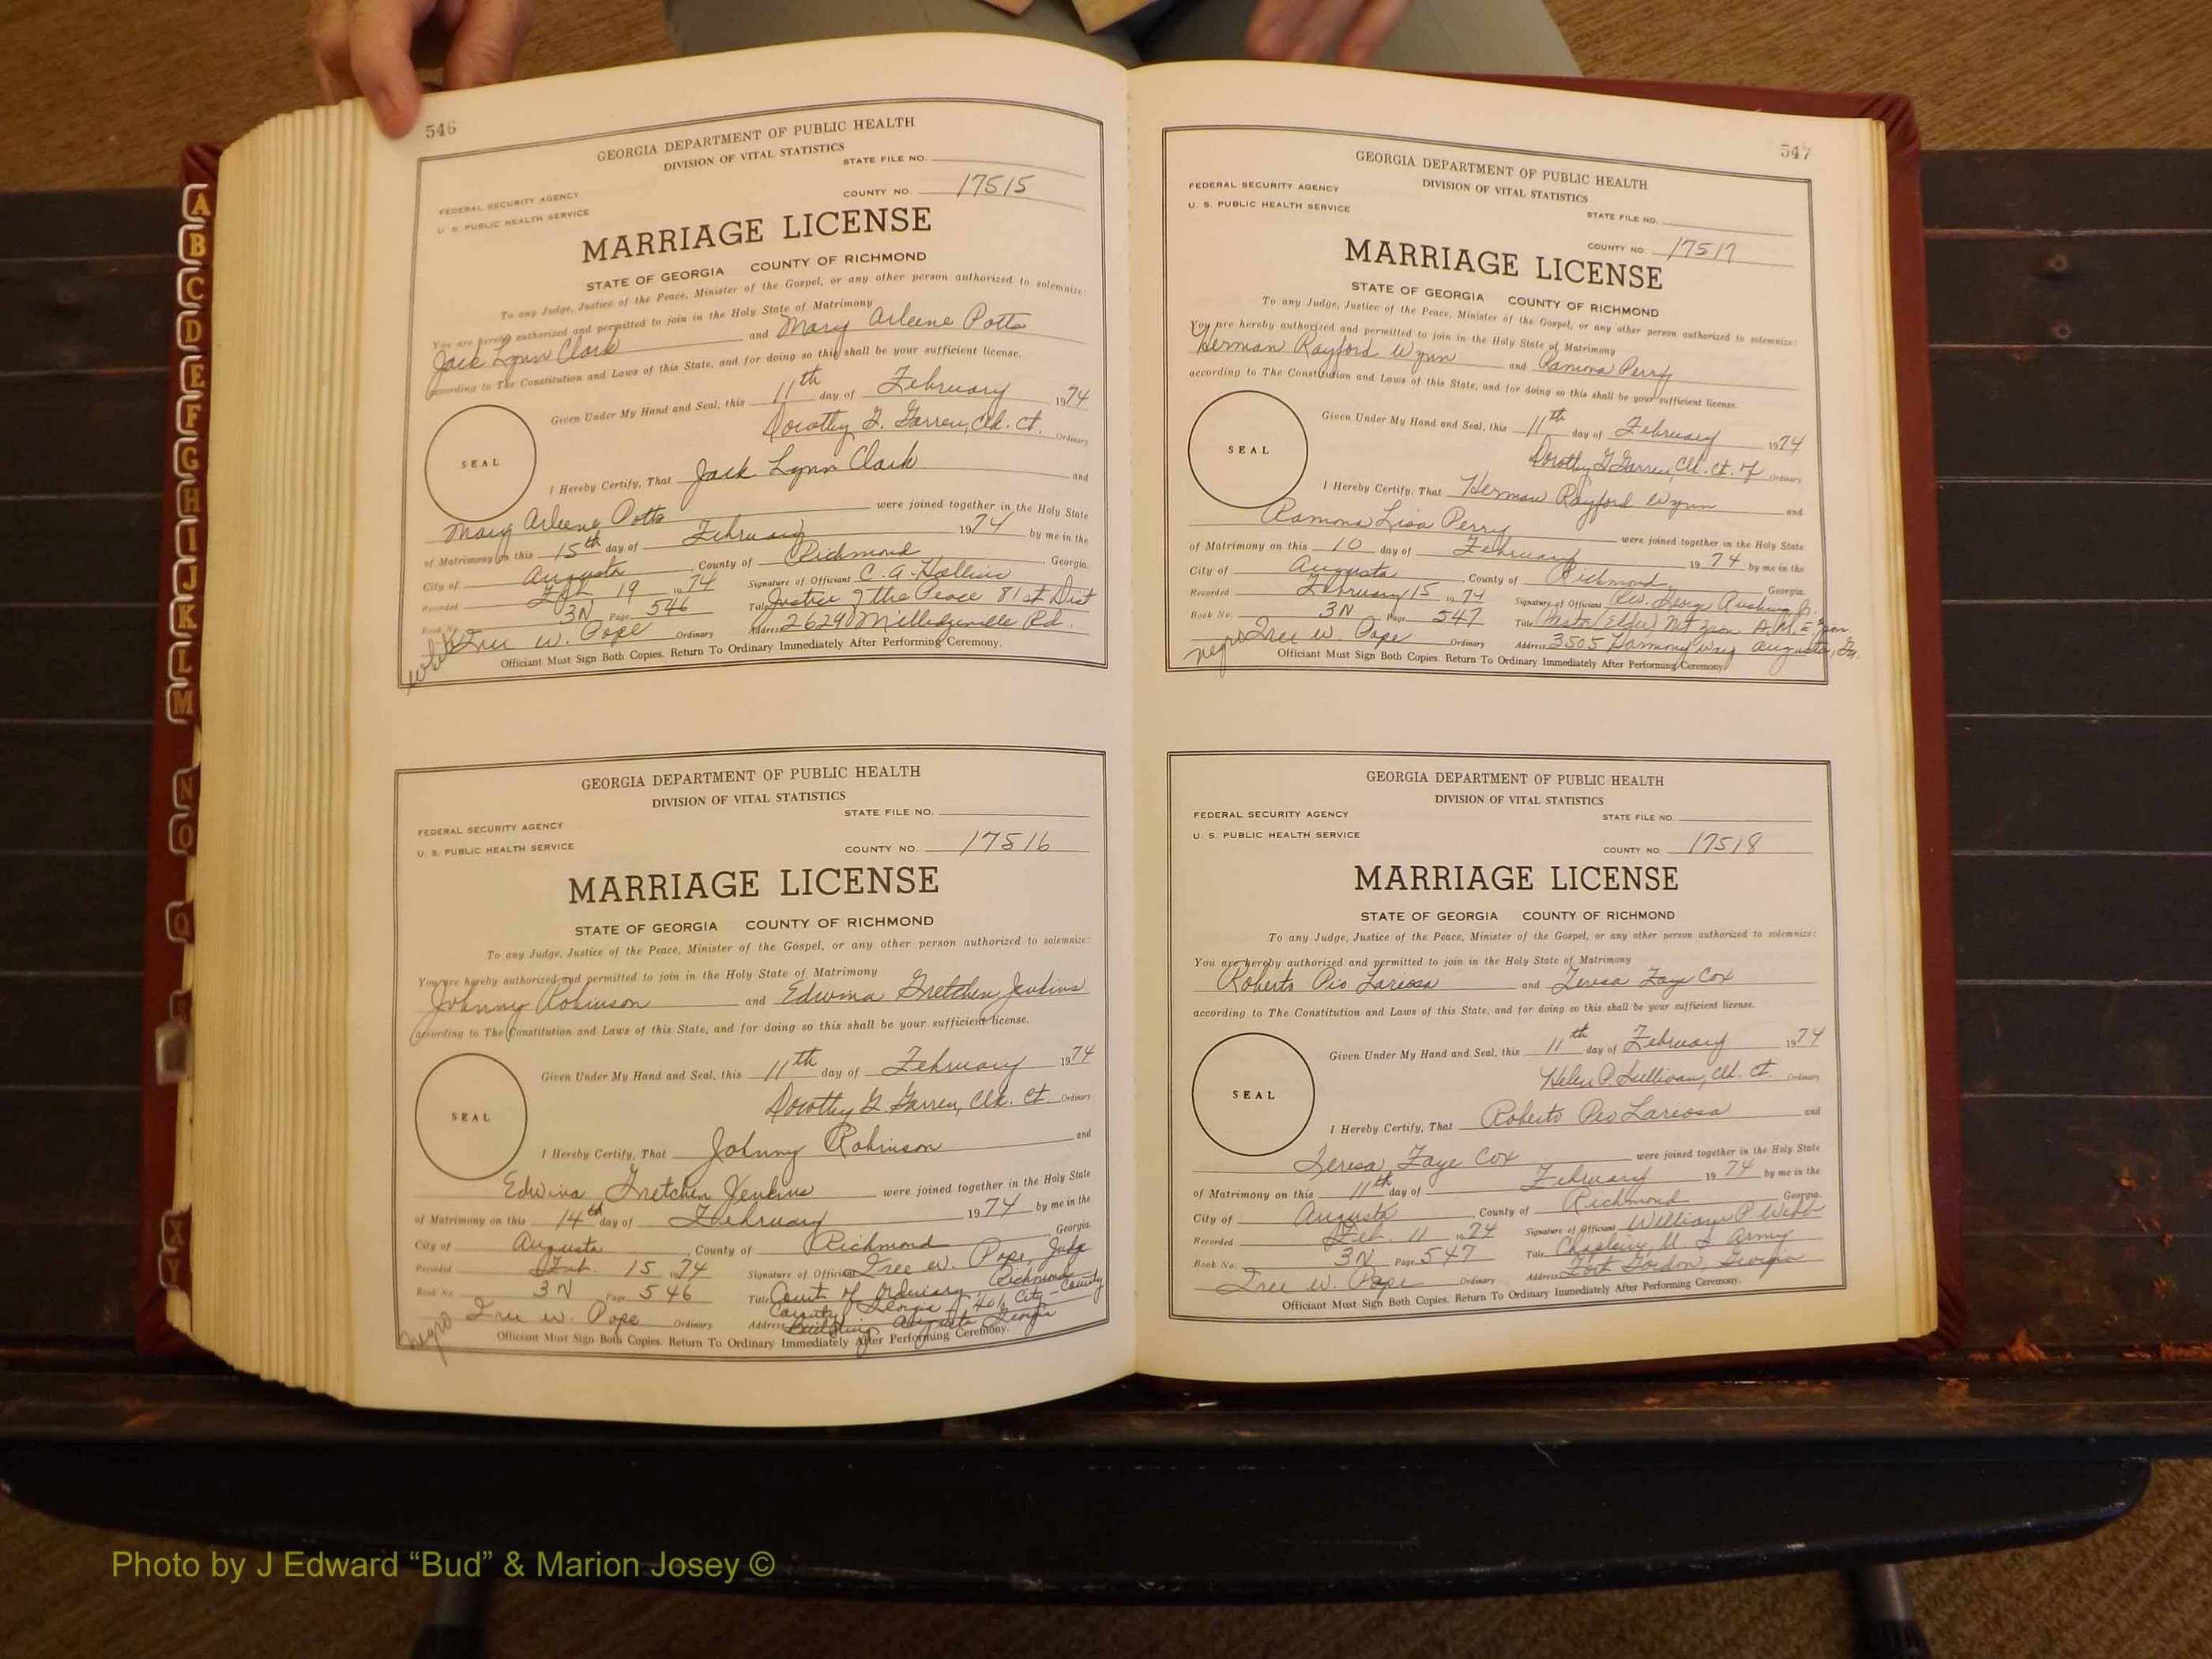 546
GEORGIA DEPARTMENT OF PUBLIC HEALTH
DIVISION OF VITAL STATISTICS
STATE FILE NO.
FEDERAL SECURITY AGENCY
U. S. PUBLIC HEALTH SERVICE
COUNTY NO. 17515
MARRIAGE LICENSE
STATE OF GEORGIA COUNTY OF RICHMOND
To any Judge, Justice of the Peace, Minister of the Gospel, or any other person authorized to solemnize:
You are hereby authorized and permitted to join in the Holy State of Matrimony
Jack Lynn Clark and Mary Arleene Potts
according to The Constitution and Laws of this State, and for doing so this shall be your sufficient license.
Given Under My Hand and Seal, this 11th day of February 1974
Dorothy G. Garren, Clk. Ct. Ordinary
SEAL
I Hereby Certify, That Jack Lynn Clark and
Mary Arleene Potts were joined together in the Holy State
of Matrimony on this 15th day of February 1974 by me in the
City of Augusta, County of Richmond, Georgia.
Recorded Feb 19 1974 Signature of Officiant C. A. Hollins
Book No. 3N Page 546 Title Justice of the Peace 81st Dist
Iree W. Pope Ordinary Address 2629 Milledgeville Rd.
white
Officiant Must Sign Both Copies. Return To Ordinary Immediately After Performing Ceremony.
GEORGIA DEPARTMENT OF PUBLIC HEALTH
DIVISION OF VITAL STATISTICS
STATE FILE NO.
FEDERAL SECURITY AGENCY
U. S. PUBLIC HEALTH SERVICE
COUNTY NO. 17516
MARRIAGE LICENSE
STATE OF GEORGIA COUNTY OF RICHMOND
To any Judge, Justice of the Peace, Minister of the Gospel, or any other person authorized to solemnize:
You are hereby authorized and permitted to join in the Holy State of Matrimony
Johnny Robinson and Edwina Gretchen Jenkins
according to The Constitution and Laws of this State, and for doing so this shall be your sufficient license.
Given Under My Hand and Seal, this 11th day of February 1974
Dorothy G. Garren, Clk. Ct. Ordinary
SEAL
I Hereby Certify, That Johnny Robinson and
Edwina Gretchen Jenkins were joined together in the Holy State
of Matrimony on this 14th day of February 1974 by me in the
City of Augusta, County of Richmond Georgia.
Recorded Feb. 15 1974 Signature of Officiant Iree W. Pope, Judge
Book No. 3N Page 546 Title Court of Ordinary, Richmond
County Georgia 401 City-County
Iree W. Pope Ordinary Address Building Augusta Georgia
negro
Officiant Must Sign Both Copies. Return To Ordinary Immediately After Performing Ceremony.
547
GEORGIA DEPARTMENT OF PUBLIC HEALTH
DIVISION OF VITAL STATISTICS
FEDERAL SECURITY AGENCY
U. S. PUBLIC HEALTH SERVICE
STATE FILE NO.
COUNTY NO. 17517
MARRIAGE LICENSE
STATE OF GEORGIA COUNTY OF RICHMOND
To any Judge, Justice of the Peace, Minister of the Gospel, or any other person authorized to solemnize:
You are hereby authorized and permitted to join in the Holy State of Matrimony
Herman Rayford Wynn and Ramona Perry
according to The Constitution and Laws of this State, and for doing so this shall be your sufficient license.
Given Under My Hand and Seal, this 11th day of February 1974
Dorothy G Garren, Clk. Ct. of Ordinary
SEAL
I Hereby Certify, That Herman Rayford Wynn and
Ramona Lisa Perry were joined together in the Holy State
of Matrimony on this 10 day of February 1974 by me in the
City of Augusta, County of Richmond, Georgia.
Recorded February 15 1974 Signature of Officiant Rev.
Book No. 3N Page 547 Title Pastor (Elder) Mt Zion A.M.E Zion
Iree W. Pope Ordinary Address 3505 Harmony Way Augusta, Ga.
negro
Officiant Must Sign Both Copies. Return To Ordinary Immediately After Performing Ceremony
GEORGIA DEPARTMENT OF PUBLIC HEALTH
DIVISION OF VITAL STATISTICS
FEDERAL SECURITY AGENCY
STATE FILE NO.
U. S. PUBLIC HEALTH SERVICE
COUNTY NO. 17518
MARRIAGE LICENSE
STATE OF GEORGIA COUNTY OF RICHMOND
To any Judge, Justice of the Peace, Minister of the Gospel, or any other person authorized to solemnize:
You are hereby authorized and permitted to join in the Holy State of Matrimony
Roberto Pio Lariosa and Teresa Faye Cox
according to The Constitution and Laws of this State, and for doing so this shall be your sufficient license.
Given Under My Hand and Seal, this 11th day of February 1974
Helen P. Sullivan, Clk. Ct. Ordinary
SEAL
I Hereby Certify, That Roberto Pio Lariosa and
Teresa Faye Cox were joined together in the Holy State
of Matrimony on this 11th day of February 1974 by me in the
City of Augusta, County of Richmond Georgia.
Recorded Feb. 11 1974 Signature of Officiant William P Webb
Book No. 3N Page 547 Title Chaplain, U. S Army
Iree W. Pope Ordinary Address Fort Gordon, Georgia
Officiant Must Sign Both Copies. Return To Ordinary Immediately After Performing Ceremony.
A
B
C
D
E
F
G
H
I
J
K
L
M
N
O
Q
S
X
Y
Photo by J Edward “Bud” & Marion Josey ©